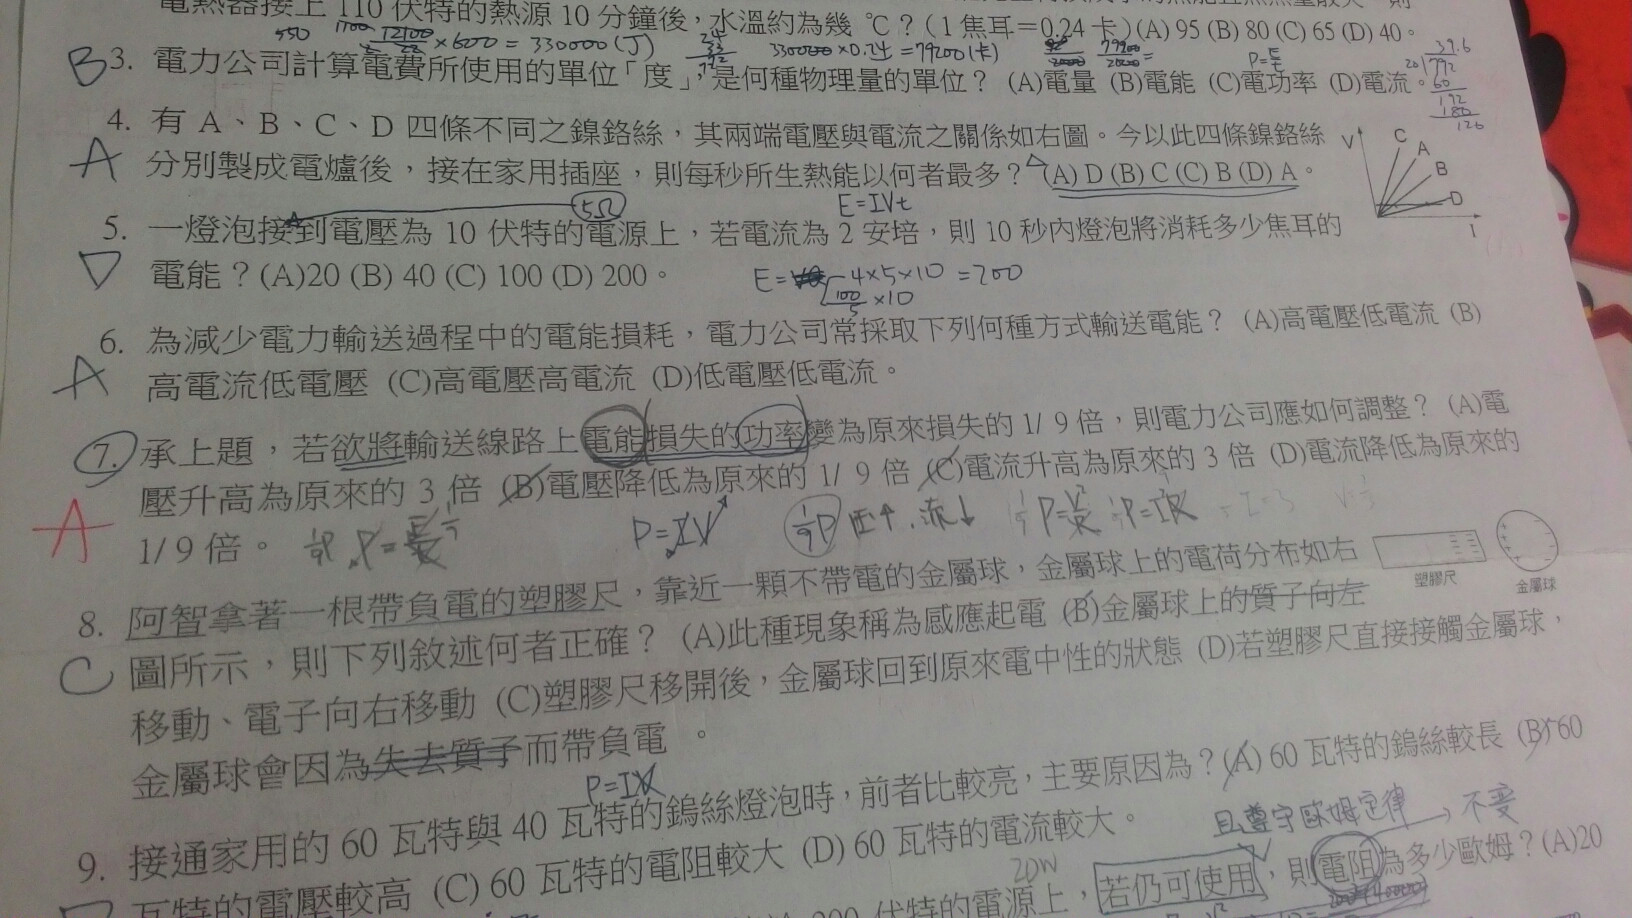 電熱器接上 110 伏特的熱源 10 分鐘後，水溫約為幾 ℃？(1 焦耳＝0.24 卡) (A) 95 (B) 80 (C) 65 (D) 40。
550
×600 = 330000 (J)
330000×0.24 =79200(卡)
39.6
B 3. 電力公司計算電費所使用的單位「度」，是何種物理量的單位？ (A)電量 (B)電能 (C)電功率 (D)電流。
4. 有 A、B、C、D 四條不同之鎳鉻絲，其兩端電壓與電流之關係如右圖。今以此四條鎳鉻絲
A 分別製成電爐後，接在家用插座，則每秒所生熱能以何者最多？ (A) D (B) C (C) B (D) A。
V C A B D I
5Ω E=IVt
5. 一燈泡接到電壓為 10 伏特的電源上，若電流為 2 安培，則 10 秒內燈泡將消耗多少焦耳的
D 電能？(A)20 (B) 40 (C) 100 (D) 200。 E= 4×5×10 =200
100/5 ×10
6. 為減少電力輸送過程中的電能損耗，電力公司常採取下列何種方式輸送電能？ (A)高電壓低電流 (B)
A 高電流低電壓 (C)高電壓高電流 (D)低電壓低電流。
7. 承上題，若欲將輸送線路上電能損失的功率變為原來損失的 1/ 9 倍，則電力公司應如何調整？ (A)電
壓升高為原來的 3 倍 (B)電壓降低為原來的 1/ 9 倍 (C)電流升高為原來的 3 倍 (D)電流降低為原來的
A 1/ 9 倍。 P=IV 1/9P 壓↑.流↓
8. 阿智拿著一根帶負電的塑膠尺，靠近一顆不帶電的金屬球，金屬球上的電荷分布如右
塑膠尺 金屬球
C 圖所示，則下列敘述何者正確？ (A)此種現象稱為感應起電 (B)金屬球上的質子向左
移動、電子向右移動 (C)塑膠尺移開後，金屬球回到原來電中性的狀態 (D)若塑膠尺直接接觸金屬球，
金屬球會因為失去質子而帶負電 。
P=IV
9. 接通家用的 60 瓦特與 40 瓦特的鎢絲燈泡時，前者比較亮，主要原因為？(A) 60 瓦特的鎢絲較長 (B) 60
D 瓦特的電壓較高 (C) 60 瓦特的電阻較大 (D) 60 瓦特的電流較大。
且遵守歐姆定律 → 不變
20W
伏特的電源上，若仍可使用，則電阻為多少歐姆？(A)20